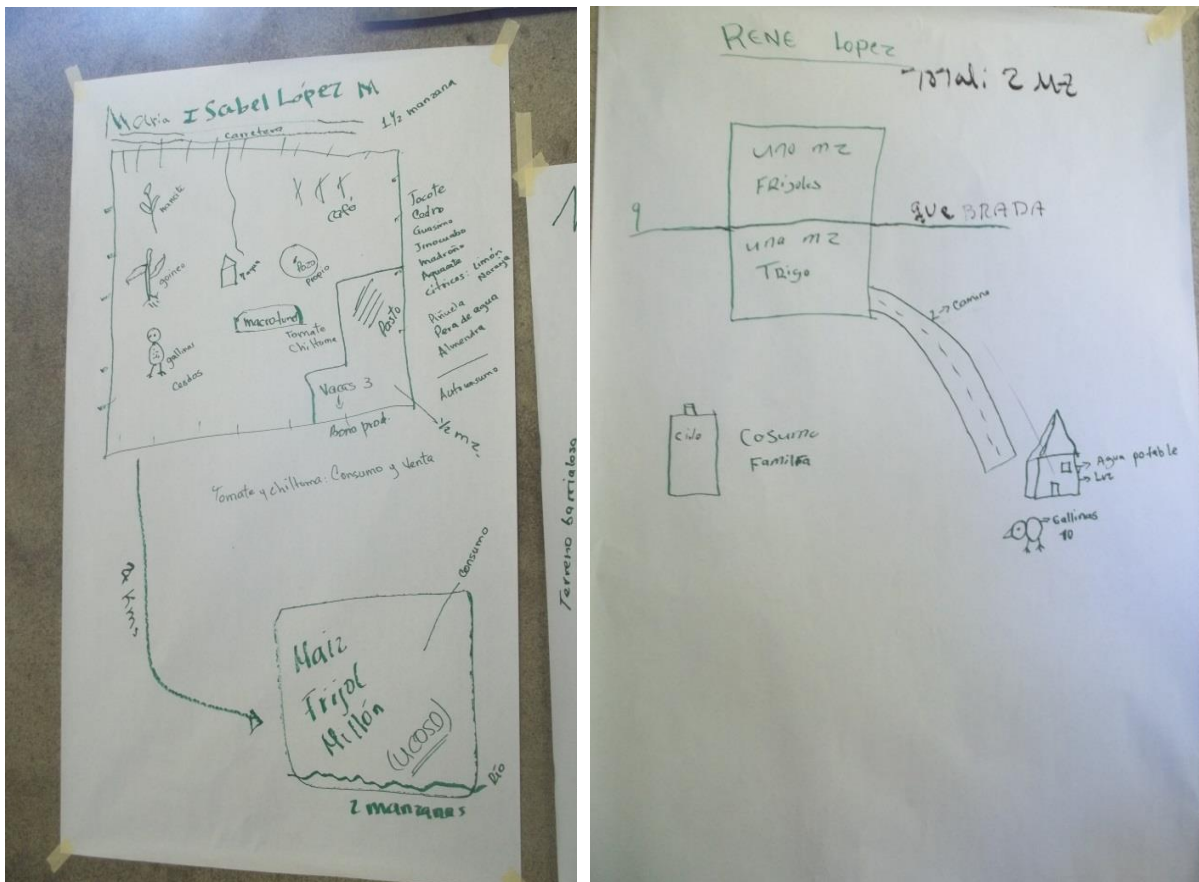 Maria Isabel López M
carretera
1 ½ manzana
café
Pozo
propio
guineo
macrotunel
Tomate
Chiltoma
gallinas
Cerdos
Pasto
Vacas 3
Bono prod.
½ mz.
Jocote
Cedro
Guasimo
madroño
Aguacate
Citricos: Limón
Naranja
Piñuela
Pera de agua
Almendra
Autoconsumo
Tomate y chiltoma: Consumo y Venta
2 km.
Consumo
Maiz
Frijol
Millón
(UCOSO)
Río
2 manzanas
Terreno barrialoso
RENE Lopez
Total: 2 MZ
uno mz
FRijoles
queBRADA
una mz
TRigo
Camino
Cilo
Cosumo
Familia
Agua potable
Luz
Gallinas
10